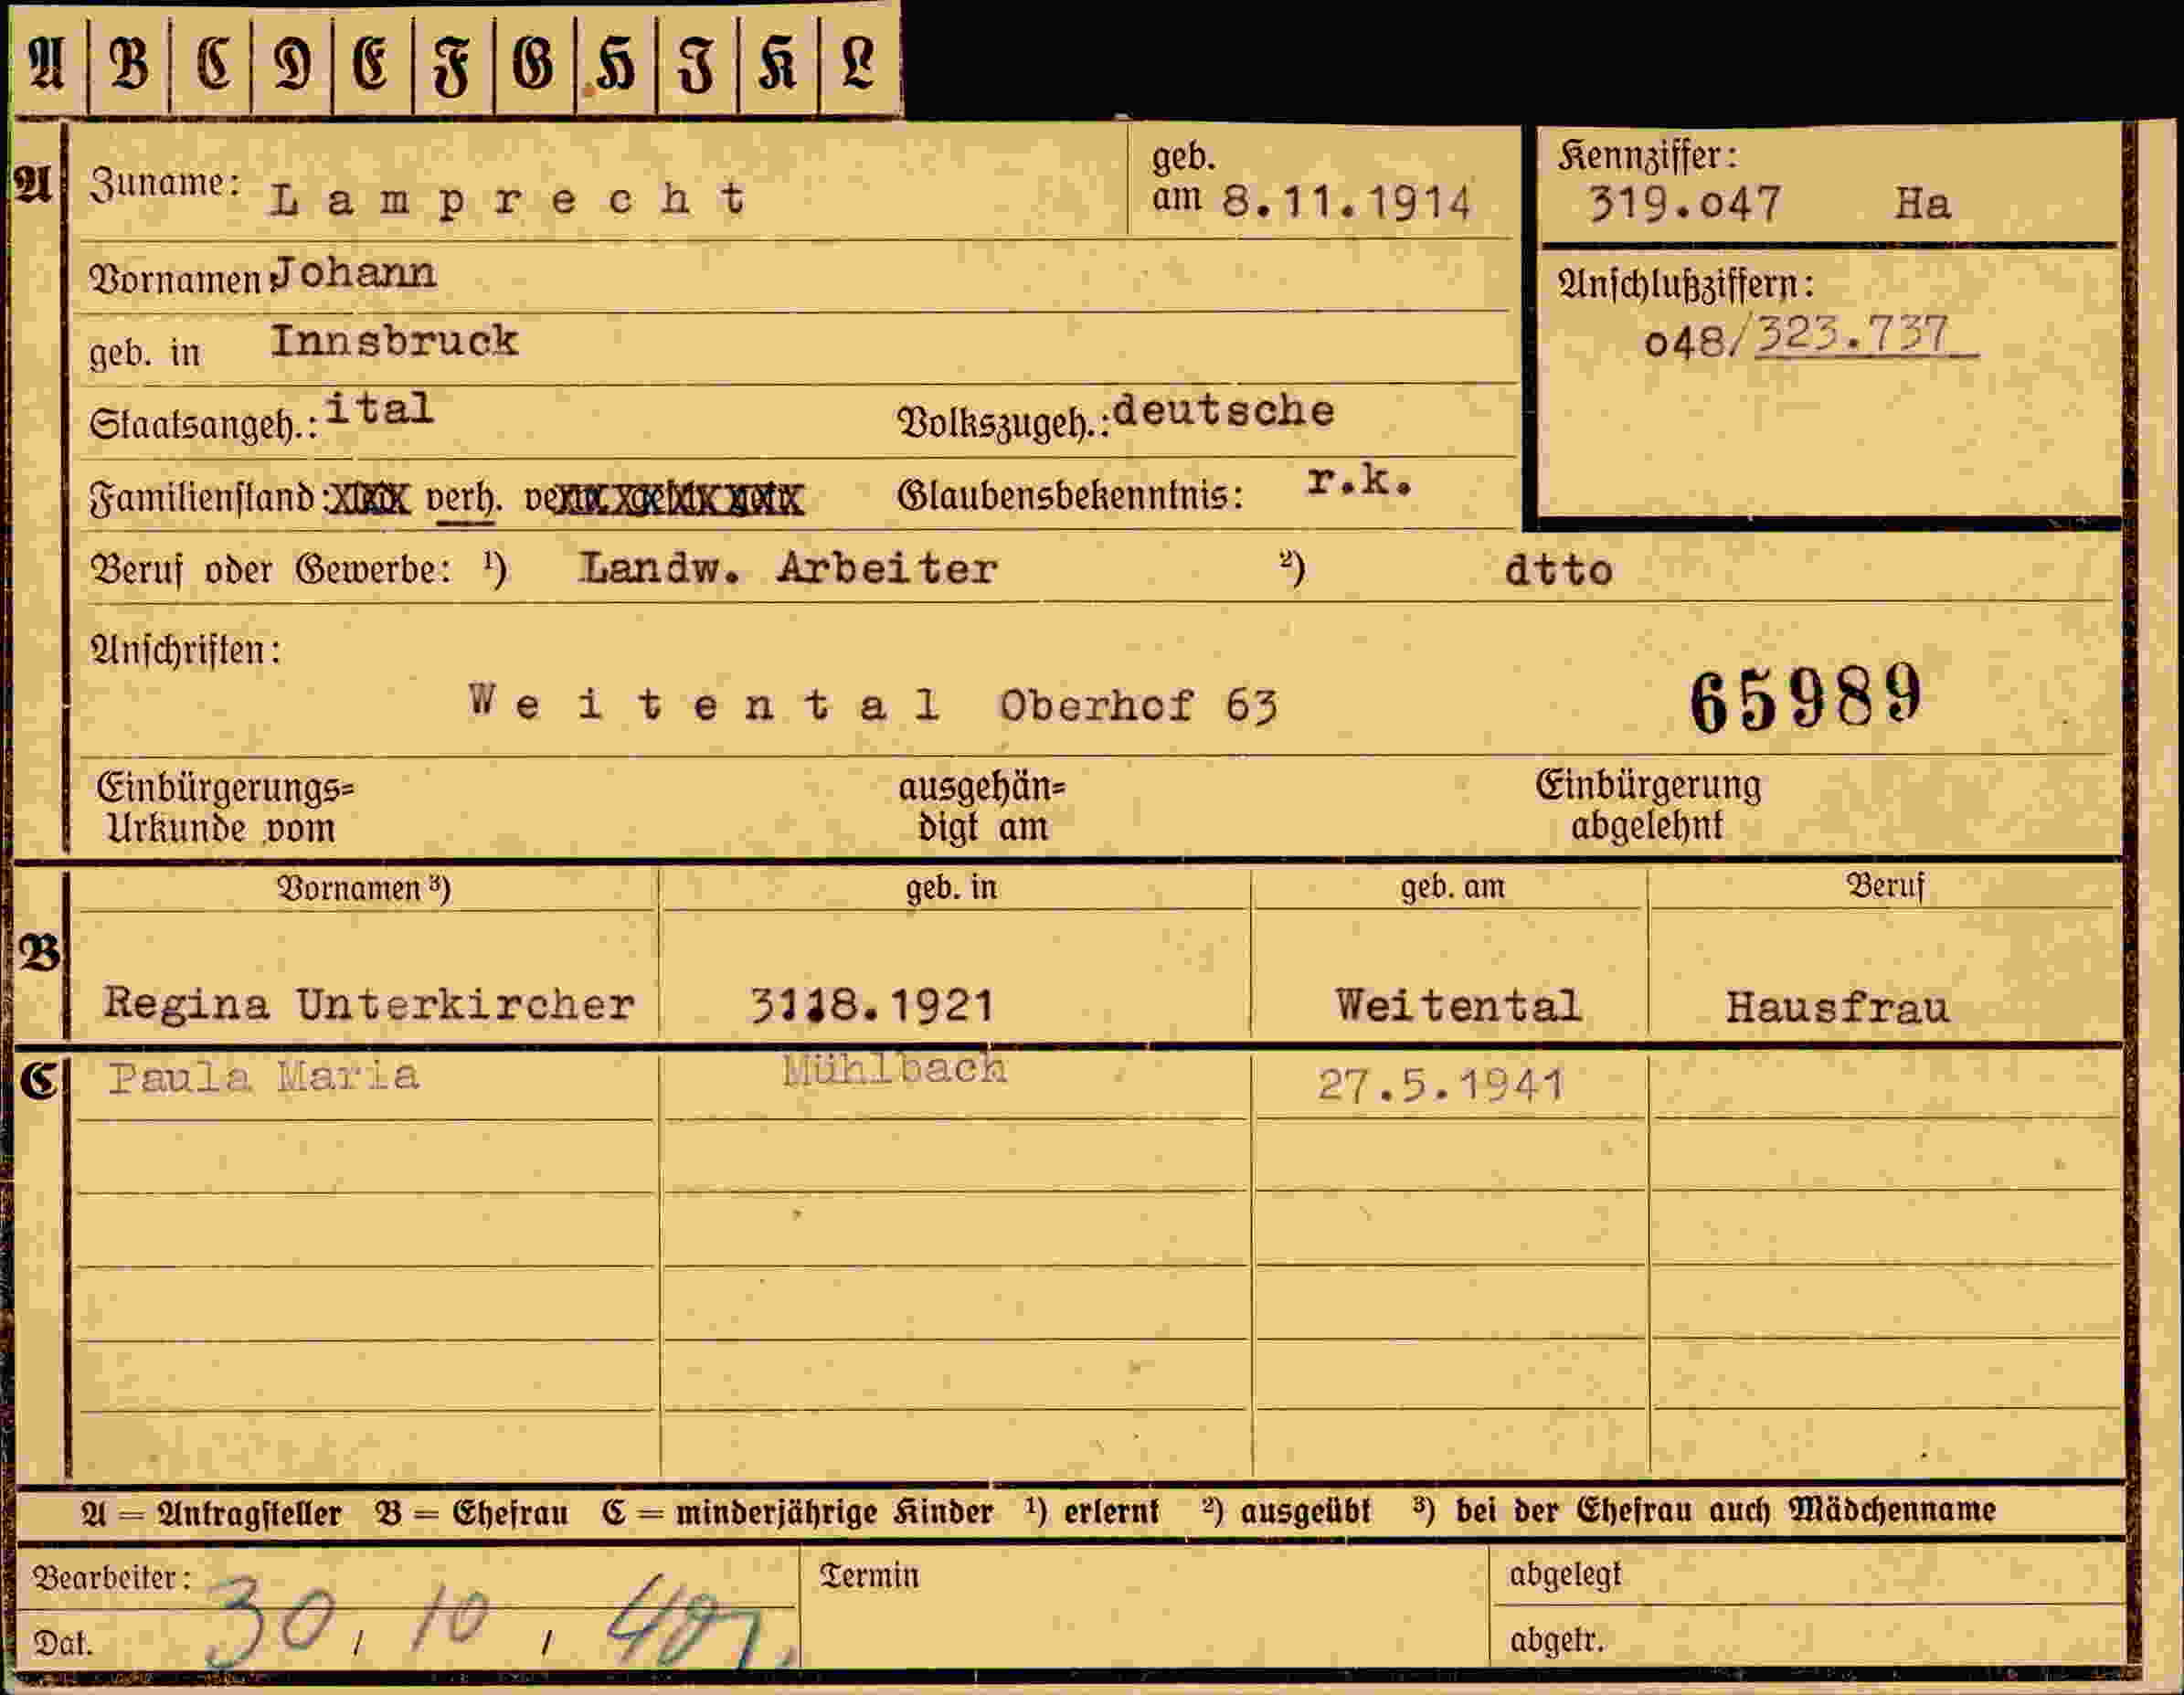 A B C D E F G H I K L
A Zuname: Lamprecht geb. am 8.11.1914 Kennziffer: 319.o47 Ha
Vornamen: Johann Anschlußziffern:
geb. in Innsbruck o48/323.737
Staatsangeh.: ital Volkszugeh.: deutsche
Familienstand: verh. Glaubensbekenntnis: r.k.
Beruf oder Gewerbe: ¹) Landw. Arbeiter ²) dtto
Anschriften:
Weitental Oberhof 63 65989
Einbürgerungs= ausgehän= Einbürgerung
Urkunde vom digt am abgelehnt
Vornamen ³) geb. in geb. am Beruf
B
Regina Unterkircher .8.1921 Weitental Hausfrau
C Paula Maria Mühlbach 27.5.1941
A = Antragsteller B = Ehefrau C = minderjährige Kinder ¹) erlernt ²) ausgeübt ³) bei der Ehefrau auch Mädchenname
Bearbeiter: Termin abgelegt
Dat. 30 / 10 / abgetr.